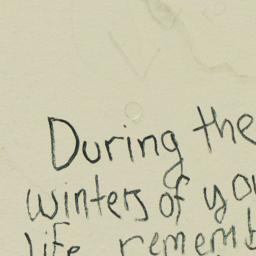 During the
winters of yo
life rememb